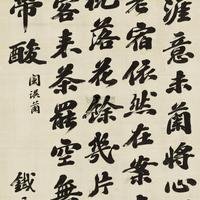 涯意未蘭將心
老宿依然在案
枕落花餘幾片
客來茶罷空無
帶酸
鐵